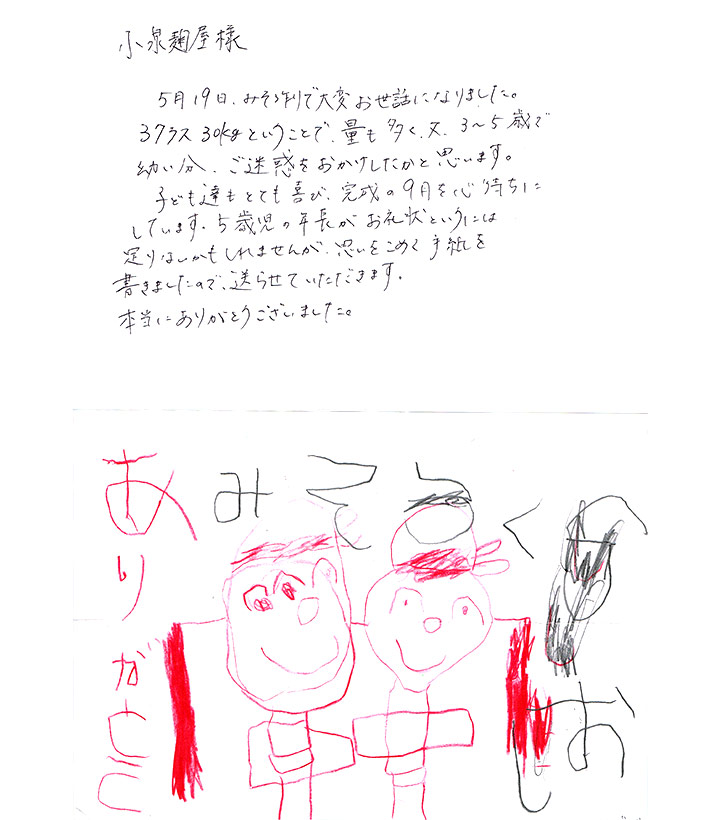 小泉麹屋様
5月19日、みそ作りで大変お世話になりました。
3クラス30kgということで、量も多く、又、3〜5歳で
幼い分、ご迷惑をおかけしたかと思います。
子ども達もとても喜び、完成の9月を心待ちに
しています。5歳児の年長がお礼状というには
足りないかもしれませんが、思いをこめて手紙を
書きましたので、送らせていただきます。
本当にありがとうございました。
みそ
く
お
ありがとう